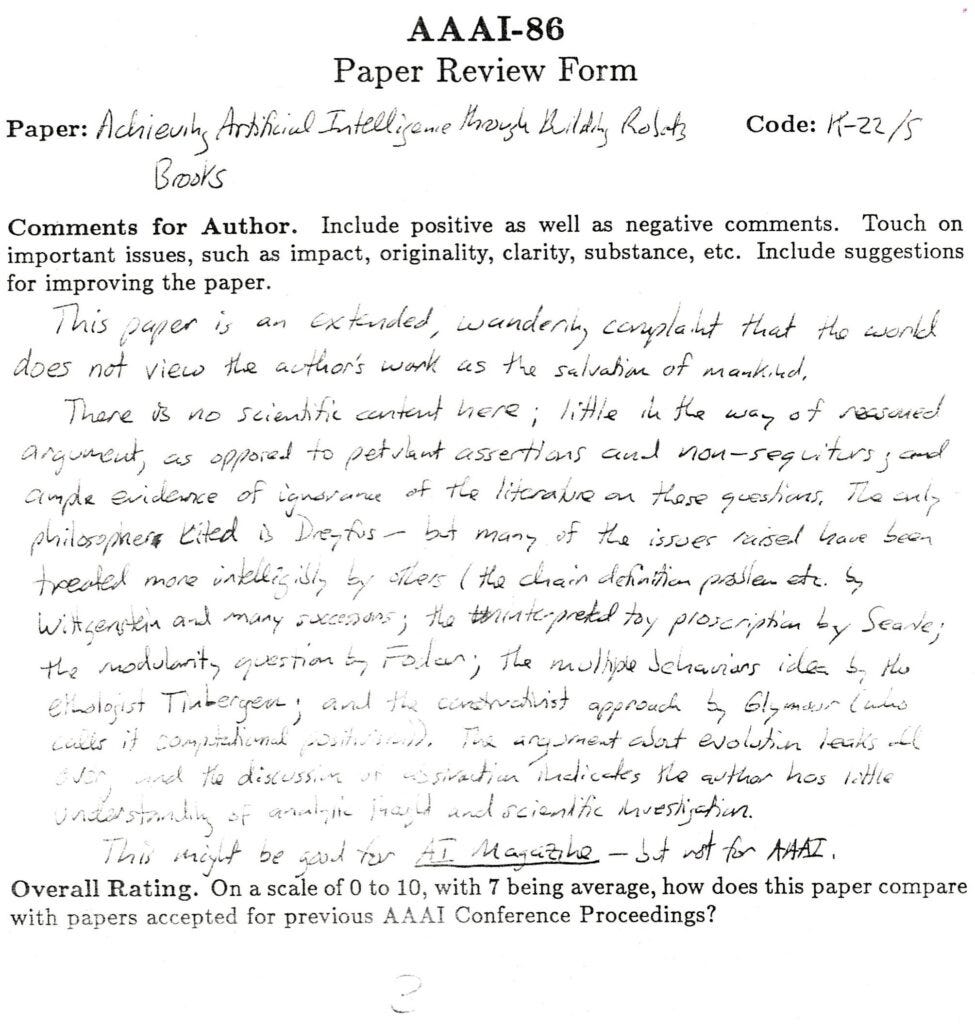 AAAI-86
Paper Review Form
Paper: Achieving Artificial Intelligence through Building Robots Code: K-22/5
Brooks
Comments for Author. Include positive as well as negative comments. Touch on
important issues, such as impact, originality, clarity, substance, etc. Include suggestions
for improving the paper.
This paper is an extended, wandering complaint that the world
does not view the author's work as the salvation of mankind.
There is no scientific content here; little in the way of reasoned
argument, as opposed to petulant assertions and non-sequiturs; and
ample evidence of ignorance of the literature on these questions. The only
philosopher cited is Dreyfus – but many of the issues raised have been
treated more intelligibly by others (the chair definition problem etc. by
Wittgenstein and many successors; the interpreted toy proscription by Searle;
the modularity question by Fodor; the multiple behaviors idea by the
ethologist Tinbergen; and the constructivist approach by Glymour (who
calls it computational positivism). The argument about evolution leaks all
over, and the discussion of abstraction indicates the author has little
understanding of analytic and scientific investigation.
This might be good for AI Magazine – but not for AAAI.
Overall Rating. On a scale of 0 to 10, with 7 being average, how does this paper compare
with papers accepted for previous AAAI Conference Proceedings?
3